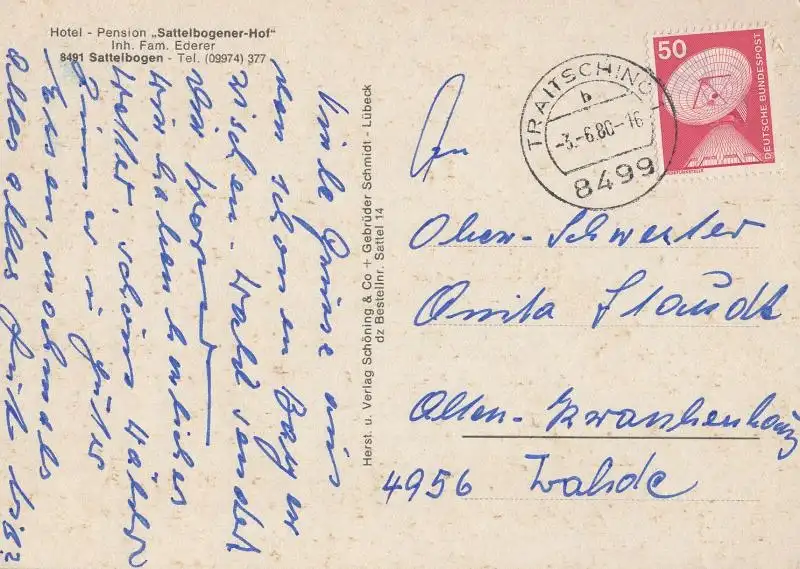 Hotel - Pension „Sattelbogener-Hof"
Inh. Fam. Ederer
8491 Sattelbogen - Tel. (09974) 377
Viele Grüße aus
den schönen Bayer
ischen - Wald sendet
Wir haben herliches
Wetter, schöne Wälder
Zimmer u gutes
Essen, nochmals
alles alles gute
Herst. u. Verlag Schöning & Co + Gebrüder Schmidt - Lübeck
dz BestellNr. Sattel 14
TRAITSCHING
b
-3.-6.80-16
8499
50
DEUTSCHE BUNDESPOST
An
Ober-Schwester
Anita Staudt
Alten-Krankenhaus
4956